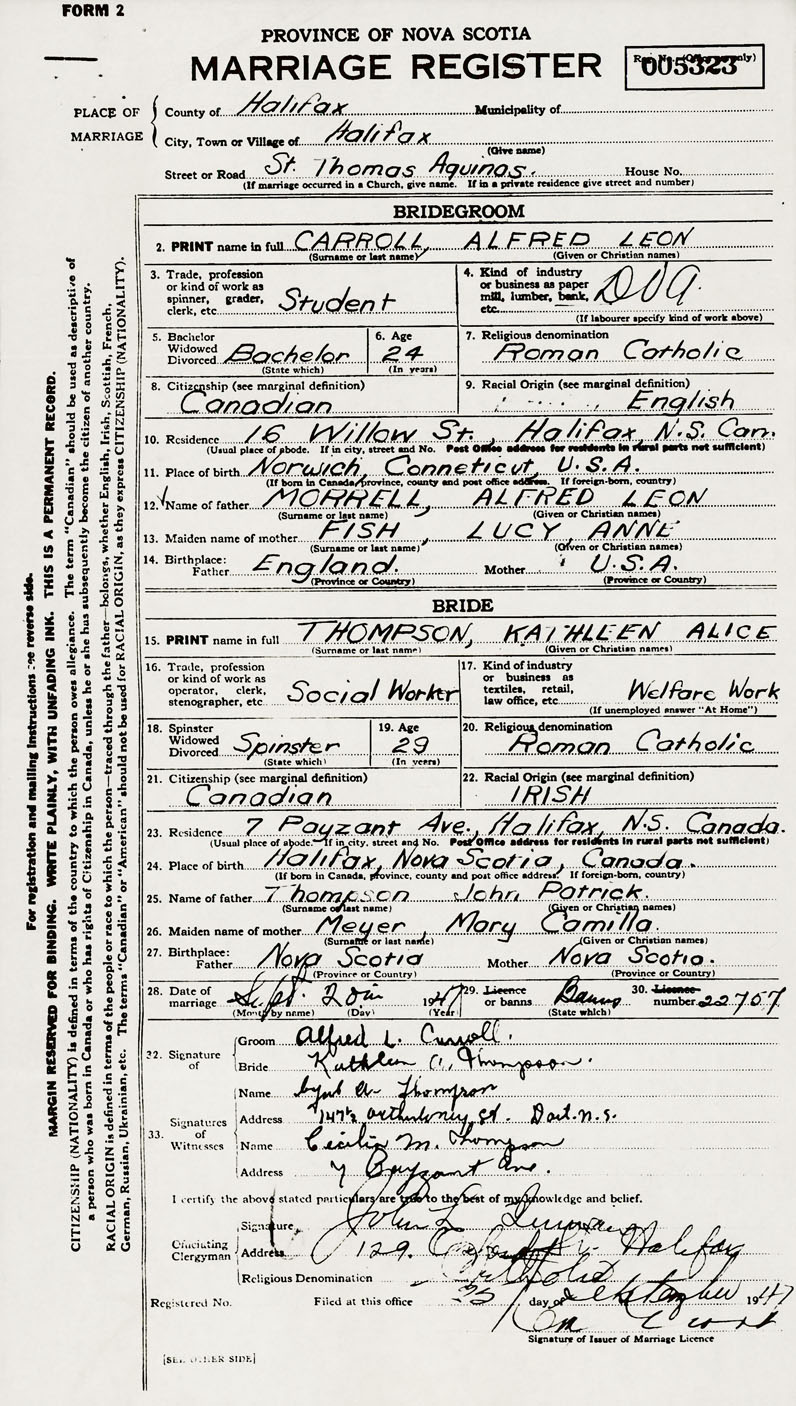 FORM 2
PROVINCE OF NOVA SCOTIA
MARRIAGE REGISTER
005323
PLACE OF MARRIAGE
County of Halifax Municipality of
City, Town or Village of Halifax
(Give name)
Street or Road St. Thomas Aquinas. House No.
(If marriage occurred in a Church, give name. If in a private residence give street and number)
BRIDEGROOM
2. PRINT name in full CARROLL, ALFRED LEON
(Surname or last name) (Given or Christian names)
3. Trade, profession or kind of work as spinner, grader, clerk, etc. Student
4. Kind of industry or business as paper mill, lumber, bank, etc. DVA.
(If labourer specify kind of work above)
5. Bachelor Widowed Divorced Bachelor
(State which)
6. Age 24
(In years)
7. Religious denomination
Roman Catholic
8. Citizenship (see marginal definition)
Canadian
9. Racial Origin (see marginal definition)
English
10. Residence 16 Willow St., Halifax, N.S. Can.
(Usual place of abode. If in city, street and No. Post Office address for residents in rural parts not sufficient)
11. Place of birth Norwich, Conneticut, U.S.A.
(If born in Canada, province, county and post office address. If foreign-born, country)
12. Name of father MORRELL, ALFRED LEON
(Surname or last name) (Given or Christian names)
13. Maiden name of mother FISH, LUCY ANNE
(Surname or last name) (Given or Christian names)
14. Birthplace: Father England. Mother U.S.A.
(Province or Country) (Province or Country)
BRIDE
15. PRINT name in full THOMPSON, KATHLEEN ALICE
(Surname or last name) (Given or Christian names)
16. Trade, profession or kind of work as operator, clerk, stenographer, etc. Social Worker
17. Kind of industry or business as textiles, retail, law office, etc. Welfare Work
(If unemployed answer "At Home")
18. Spinster Widowed Divorced Spinster
(State which)
19. Age 29
(In years)
20. Religious denomination
Roman Catholic
21. Citizenship (see marginal definition)
Canadian
22. Racial Origin (see marginal definition)
IRISH
23. Residence 7 Payzant Ave., Halifax, N.S. Canada.
(Usual place of abode. If in city, street and No. Post Office address for residents in rural parts not sufficient)
24. Place of birth Halifax, Nova Scotia, Canada.
(If born in Canada, province, county and post office address. If foreign-born, country)
25. Name of father Thompson John Patrick.
(Surname or last name) (Given or Christian names)
26. Maiden name of mother Meyer, Mary Camilla.
(Surname or last name) (Given or Christian names)
27. Birthplace: Father Nova Scotia Mother Nova Scotia.
(Province or Country) (Province or Country)
28. Date of marriage Sept. 20th 1947
(Month by name) (Day) (Year)
29. Licence or banns Banns
(State which)
30. Licence number 22707
32. Signature of
Groom Alfred L. Carroll.
Bride Kathleen A. Thompson.
33. Signatures of Witnesses
Name A. Thompson
Address St. Dart. N.S.
Name Cecilia M. Thompson
Address 7 Payzant Ave.
I certify the above stated particulars are true to the best of my knowledge and belief.
Officiating Clergyman
Signature John L.
Address 129 Oxford St. Halifax
Religious Denomination Catholic
Registered No. Filed at this office 25 day of September 1947
Signature of Issuer of Marriage Licence
[SEE OTHER SIDE]
For registration and mailing instructions see reverse side.
MARGIN RESERVED FOR BINDING. WRITE PLAINLY, WITH UNFADING INK. THIS IS A PERMANENT RECORD.
CITIZENSHIP (NATIONALITY) is defined in terms of the country to which the person owes allegiance. The term "Canadian" should be used as descriptive of
a person who was born in Canada or who has rights of Citizenship in Canada, unless he or she has subsequently become the citizen of another country.
RACIAL ORIGIN is defined in terms of the people or race to which the person—traced through the father—belongs, whether English, Irish, Scottish, French,
German, Russian, Ukrainian, etc. The terms "Canadian" or "American" should not be used for RACIAL ORIGIN, as they express CITIZENSHIP (NATIONALITY).